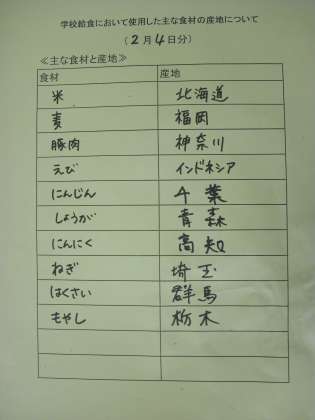 学校給食において使用した主な食材の産地について
(2月4日分)
≪主な食材と産地≫
食材 産地
米 北海道
麦 福岡
豚肉 神奈川
えび インドネシア
にんじん 千葉
しょうが 青森
にんにく 高知
ねぎ 埼玉
はくさい 群馬
もやし 栃木